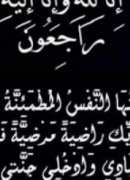 إنا لله وإنا إليه
راجعون
النفس المطمئنة
راضية مرضية
وادخلي جنتي